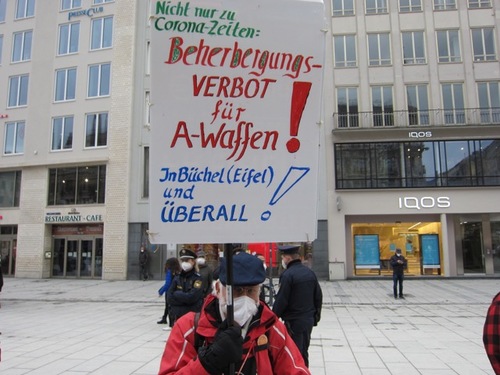 PRESSECLUB
Nicht nur zu
Corona-Zeiten:
Beherbergungs-
VERBOT
für
A-Waffen!
In Büchel (Eifel)
und
ÜBERALL!
IQOS
IQOS
RESTAURANT - CAFE